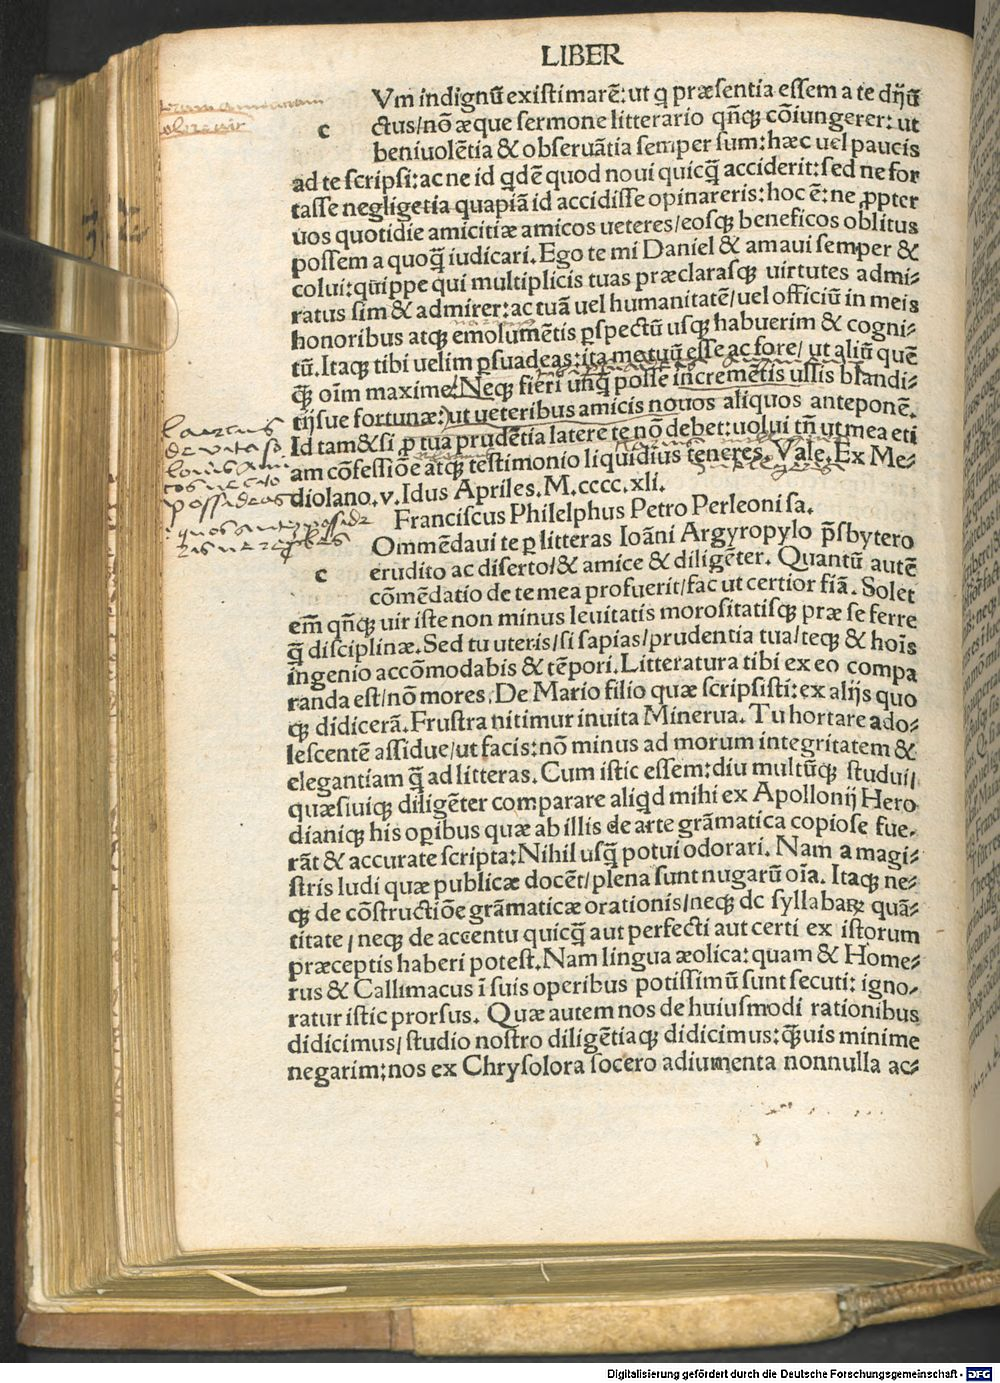 LIBER
Vm indignũ existimarẽ: ut q præsentia essem a te dijũ
c
ctus/ nõ æque sermone litterario qñcꝗ cõiungerer: ut
beniuolẽtia & obseruãtia semper sum: hæc uel paucis
ad te scripsi: ac ne id qdẽ quod noui quicꝗ̃ acciderit: sed ne for
tasse negligetia quapiã id accidisse opinareris: hoc ẽ: ne ꝓpter
uos quotidie amicitiæ amicos ueteres/ eosꝗ beneficos oblitus
possem a quoꝗ̃ iudicari. Ego te mi Daniel & amaui semper &
colui: quippe qui multiplicis tuas præclarasꝗ uirtutes admi⸗
ratus sim & admirer: ac tuã uel humanitatẽ/ uel officiũ in meis
honoribus atꝗ emolumẽtis ꝑspectũ usꝗ habuerim & cogni⸗
tũ. Itaꝗ tibi uelim ꝑsuadeas: ita metuũ esse ac fore/ ut aliũ quẽ
ꝗ̃ oĩm maxime. Neꝗ fieri unꝗ̃ posse incremẽtis ullis blandi⸗
tijsue fortunæ: ut ueteribus amicis nouos aliquos anteponẽ.
Id tam&si ꝓ tua prudẽtia latere te nõ debet: uolui tñ ut mea eti
am cõfessiõe atꝗ testimonio liquidius teneres. Vale. Ex Me⸗
diolano. v. Idus Apriles. M. cccc. xli.
Laertius
de vita so
possideas
Franciscus Philelphus Petro Perleoni sa.
Ommẽdaui te ꝑ litteras Ioãni Argyropylo p̃sbytero
c
erudito ac diserto/ & amice & diligẽter. Quantũ autẽ
cõmẽdatio de te mea profuerit/ fac ut certior fiã. Solet
em̃ qñꝗ uir iste non minus leuitatis morositatisꝗ præ se ferre
ꝗ̃ disciplinæ. Sed tu uteris/ si sapias/ prudentia tua/ teꝗ & hoĩs
ingenio accõmodabis & tẽpori. Litteratura tibi ex eo compa
randa est/ nõ mores. De Mario filio quæ scripsisti: ex alijs quo
ꝗ didicerã. Frustra nitimur inuita Minerua. Tu hortare ado⸗
lescentẽ assidue/ ut facis: nõ minus ad morum integritatem &
elegantiam ꝗ̃ ad litteras. Cum istic essem: diu multũꝗ studui/
quæsiuiꝗ diligẽter comparare aliqd mihi ex Apollonij Hero
dianiꝗ his oꝑibus quæ ab illis de arte grãmatica copiose fue⸗
rãt & accurate scripta: Nihil usꝗ̃ potui odorari. Nam a magi⸗
stris ludi quæ publicæ docẽt/ plena sunt nugarũ oĩa. Itaꝗ ne⸗
ꝗ de cõstructiõe grãmaticæ orationis/ neꝗ de syllabaꝝ quã⸗
titate/ neꝗ de accentu quicꝗ̃ aut perfecti aut certi ex istorum
præceptis haberi potest. Nam lingua æolica: quam & Home⸗
rus & Callimacus ĩ suis operibus potissimũ sunt secuti: igno⸗
ratur istic prorsus. Quæ autem nos de huiusmodi rationibus
didicimus/ studio nostro diligẽtiaꝗ didicimus: ꝗ̃uis minime
negarim: nos ex Chrysolora socero adiumenta nonnulla ac⸗
Digitalisierung gefördert durch die Deutsche Forschungsgemeinschaft - DFG